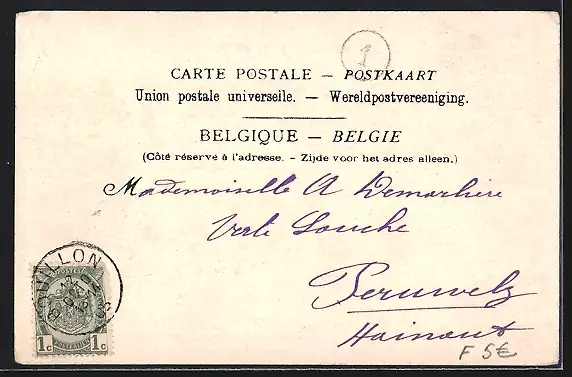 1
CARTE POSTALE — POSTKAART
Union postale universelle. — Wereldpostvereeniging.
BELGIQUE — BELGIE
(Côté réservé à l'adresse. - Zijde voor het adres alleen.)
Mademoiselle A Demarhière
Verte Louche
Peruwelz
Hainaut
1c 1c
F 5€